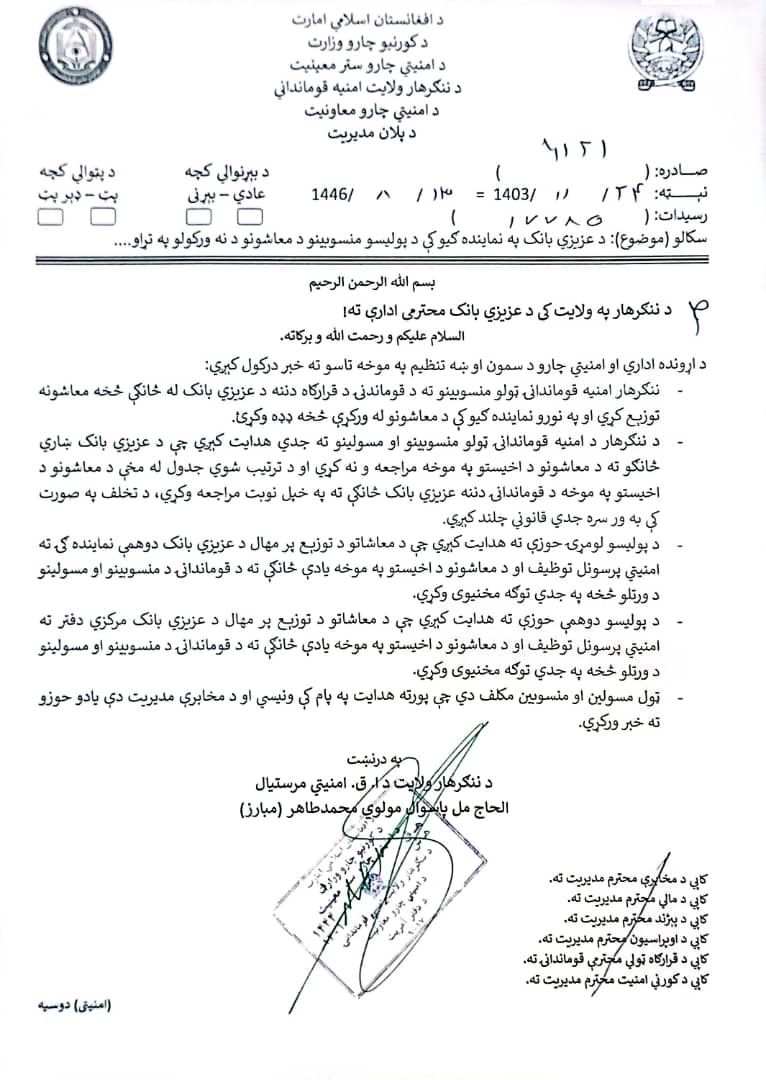 د افغانستان اسلامي امارت
د کورنیو چارو وزارت
د امنیتي چارو ستر معینیت
د ننګرهار ولایت امنیه قوماندانۍ
د امنیتي چارو معاونیت
د پلان مدیریت
صــادره: ( )
د بېړنوالي کچه
د پټوالي کچه
نېــټه: ۲۴ / ۱۱ /1403 = ۱۳ / ۸ /1446
عادي – بېړنی
پټ – ډېر پټ
رسیدات: ( )
سکالو (موضوع): د عزیزي بانک په نماینده ګیو کې د پولیسو منسوبینو د معاشونو د نه ورکولو په تړاو....
بسم الله الرحمن الرحیم
د ننګرهار په ولایت کې د عزیزي بانک محترمې ادارې ته!
السلام علیکم و رحمت الله و برکاته.
د اړونده ادارې او امنیتي چارو د سمون او ښه تنظیم په موخه تاسو ته خبر درکول کېږي:
- ننګرهار امنیه قوماندانۍ ټولو منسوبینو ته د قوماندنۍ د قرارګاه دننه د عزیزي بانک له څانګې څخه معاشونه
توزیع کړي او په نورو نماینده ګیو کې د معاشونو له ورکړې څخه ډډه وکړئ.
- د ننګرهار د امنیه قوماندانۍ ټولو منسوبینو او مسولینو ته جدي هدایت کېږي چې د عزیزي بانک ښاري
څانګو ته د معاشونو د اخیستو په موخه مراجعه و نه کړي او د ترتیب شوي جدول له مخې د معاشونو د
اخیستو په موخه د قوماندانۍ دننه عزیزي بانک څانګې ته په خپل نوبت مراجعه وکړي، د تخلف په صورت
کې به ور سره جدي قانوني چلند کېږي.
- د پولیسو لومړۍ حوزې ته هدایت کېږي چې د معاشاتو د توزیع پر مهال د عزیزي بانک دوهمې نماینده ګۍ ته
امنیتي پرسونل توظیف او د معاشونو د اخیستو په موخه یادې څانګې ته د قوماندانۍ د منسوبینو او مسولینو
د ورتلو څخه په جدي توګه مخنیوی وکړي.
- د پولیسو دوهمې حوزې ته هدایت کېږي چې د معاشاتو د توزیع پر مهال د عزیزي بانک مرکزي دفتر ته
امنیتي پرسونل توظیف او د معاشونو د اخیستو په موخه یادې څانګې ته د قوماندانۍ د منسوبینو او مسولینو
د ورتلو څخه په جدي توګه مخنیوی وکړي.
- ټول مسولین او منسوبین مکلف دي چې پورته هدایت په پام کې ونیسي او د مخابرې مدیریت دې یادو حوزو
ته خبر ورکړي.
په درنښت
د ننګرهار ولایت د ا. ق. امنیتي مرستیال
الحاج مل پاسوال مولوي محمدطاهر (مبارز)
کاپي د مخابرې محترم مدیریت ته.
کاپي د مالي محترم مدیریت ته.
کاپي د بېژند محترم مدیریت ته.
کاپي د اوپراسیون محترم مدیریت ته.
کاپي د قرارګاه ټولي محترمې قوماندانۍ ته.
کاپي د کورني امنیت محترم مدیریت ته.
(امنیتي) دوسیه